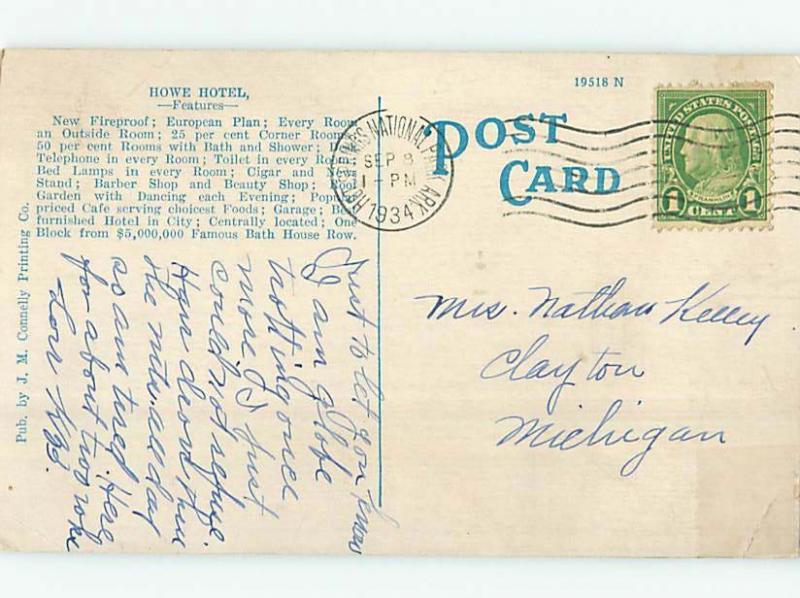 HOWE HOTEL,
—Features—
New Fireproof; European Plan; Every Room
an Outside Room; 25 per cent Corner Rooms;
50 per cent Rooms with Bath and Shower;
Telephone in every Room; Toilet in every Room;
Bed Lamps in every Room; Cigar and News
Stand; Barber Shop and Beauty Shop; Roof
Garden with Dancing each Evening; Popular
priced Cafe serving choicest Foods; Garage; Best
furnished Hotel in City; Centrally located; One
Block from $5,000,000 Famous Bath House Row.
Pub. by J. M. Connelly Printing Co.
Just to let you know
I am globe
trotting once
more. I just
could not refuse.
Have drove thru
the mts. all day
so am tired. Here
for about two wks
19518 N
POST
CARD
NATIONAL PARK ARK.
SEP 8
1-PM
1934
UNITED STATES POSTAGE
FRANKLIN
1 CENT 1
Mrs. Nathan Kelley
Clayton
Michigan